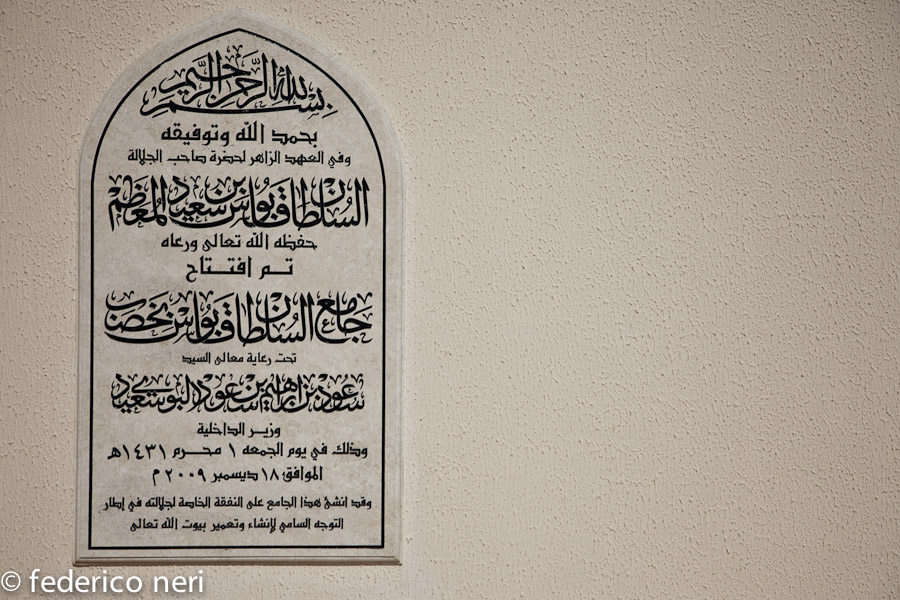 بسم الله الرحمن الرحيم
بحمد الله وتوفيقه
وفي العهد الزاهر لحضرة صاحب الجلالة
السلطان قابوس بن سعيد المعظم
حفظه الله تعالى ورعاه
تم افتتاح
جامع السلطان قابوس بخصب
تحت رعاية معالي السيد
سعود بن ابراهيم بن سعود البوسعيدي
وزير الداخلية
وذلك في يوم الجمعه ١ محرم ١٤٣١هـ
الموافق: ١٨ ديسمبر ٢٠٠٩ م
وقد انشئ هذا الجامع على النفقة الخاصة لجلالته في إطار
التوجه السامي لإنشاء وتعمير بيوت الله تعالى
© federico neri